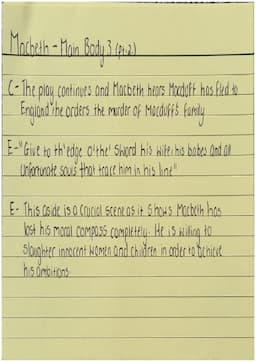 Macbeth - Main Body 3 (pt.2)
C- The play continues and Macbeth hears Macduff has fled to
England. He orders the murder of Macduff's family
E- "Give to th'edge o'the' sword his wife his babes and all
unfortunate souls that trace him in his line"
E- This aside is a crucial scene as it shows Macbeth has
lost his moral compass completely. He is willing to
slaughter innocent women and children in order to achieve
his ambitions.